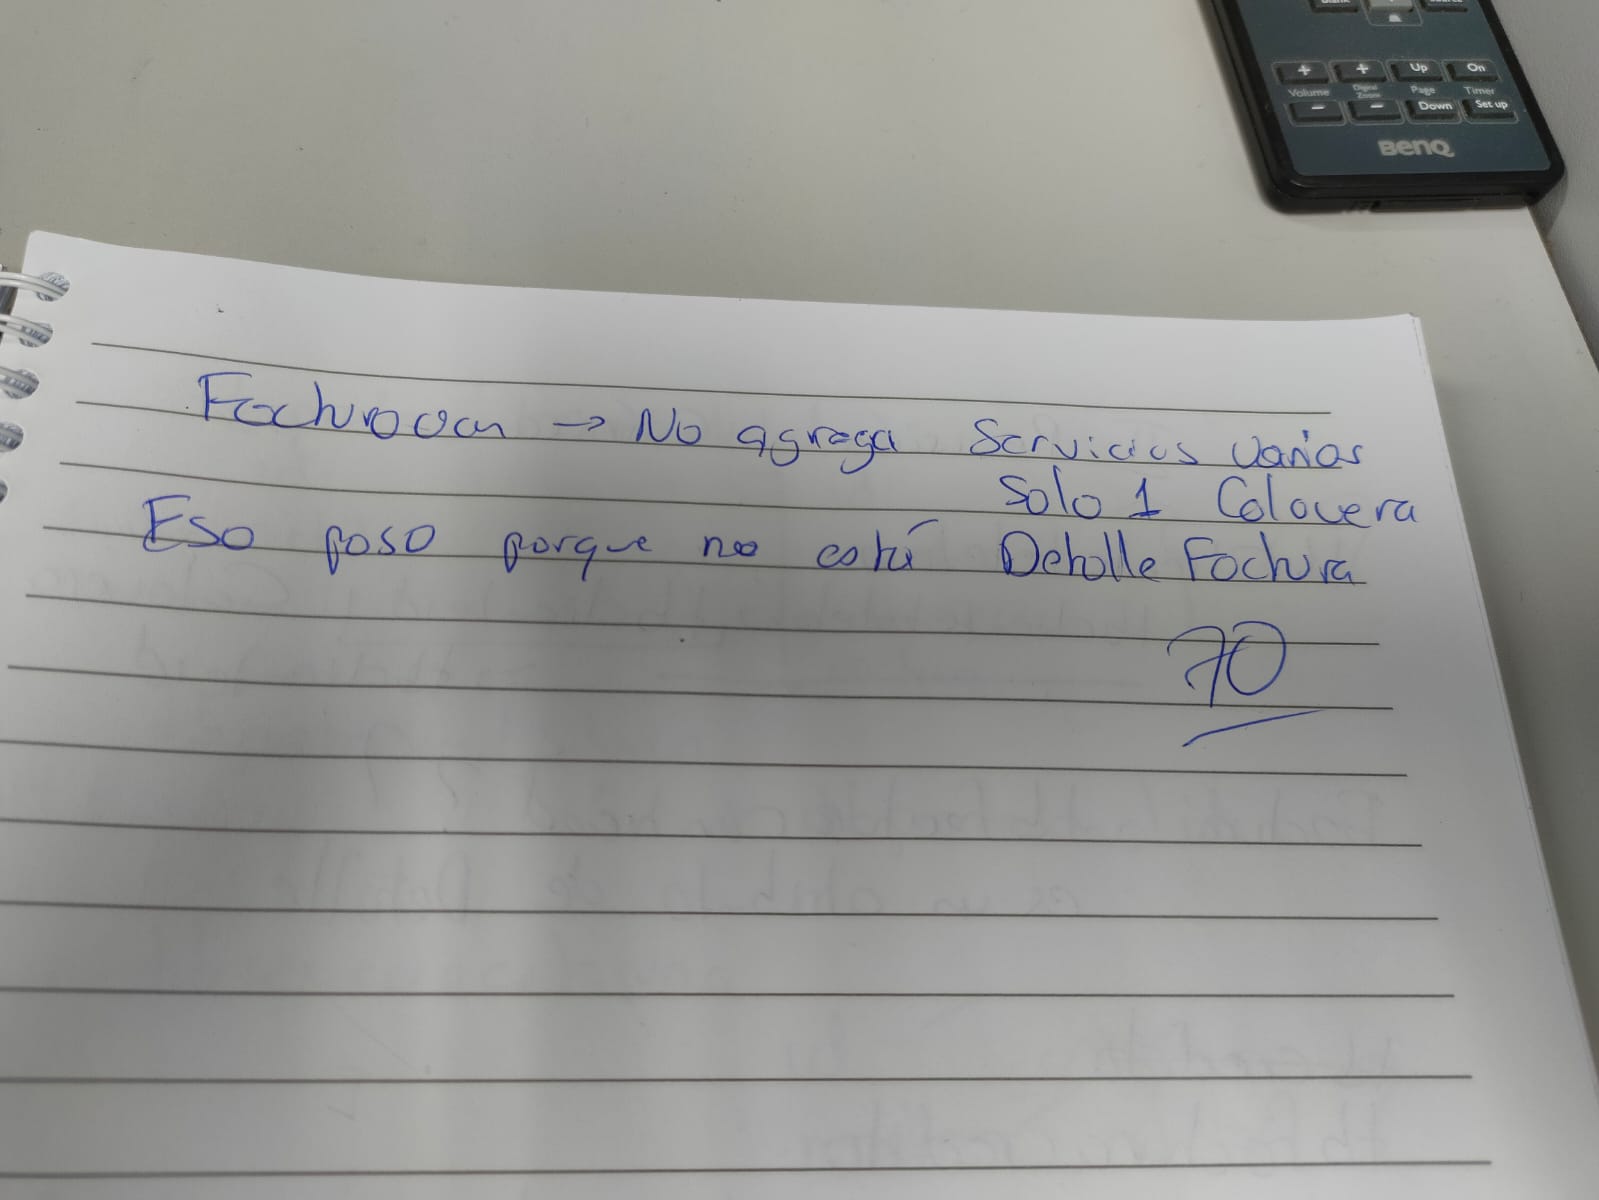 Blank
Source
+ + Up On
Volume Digital Zoom Page Timer
- - Down Set up
BenQ
Facturacion → No agrega Servicios varios
Solo 1 Calavera
Eso paso porque no está Detalle Factura
70